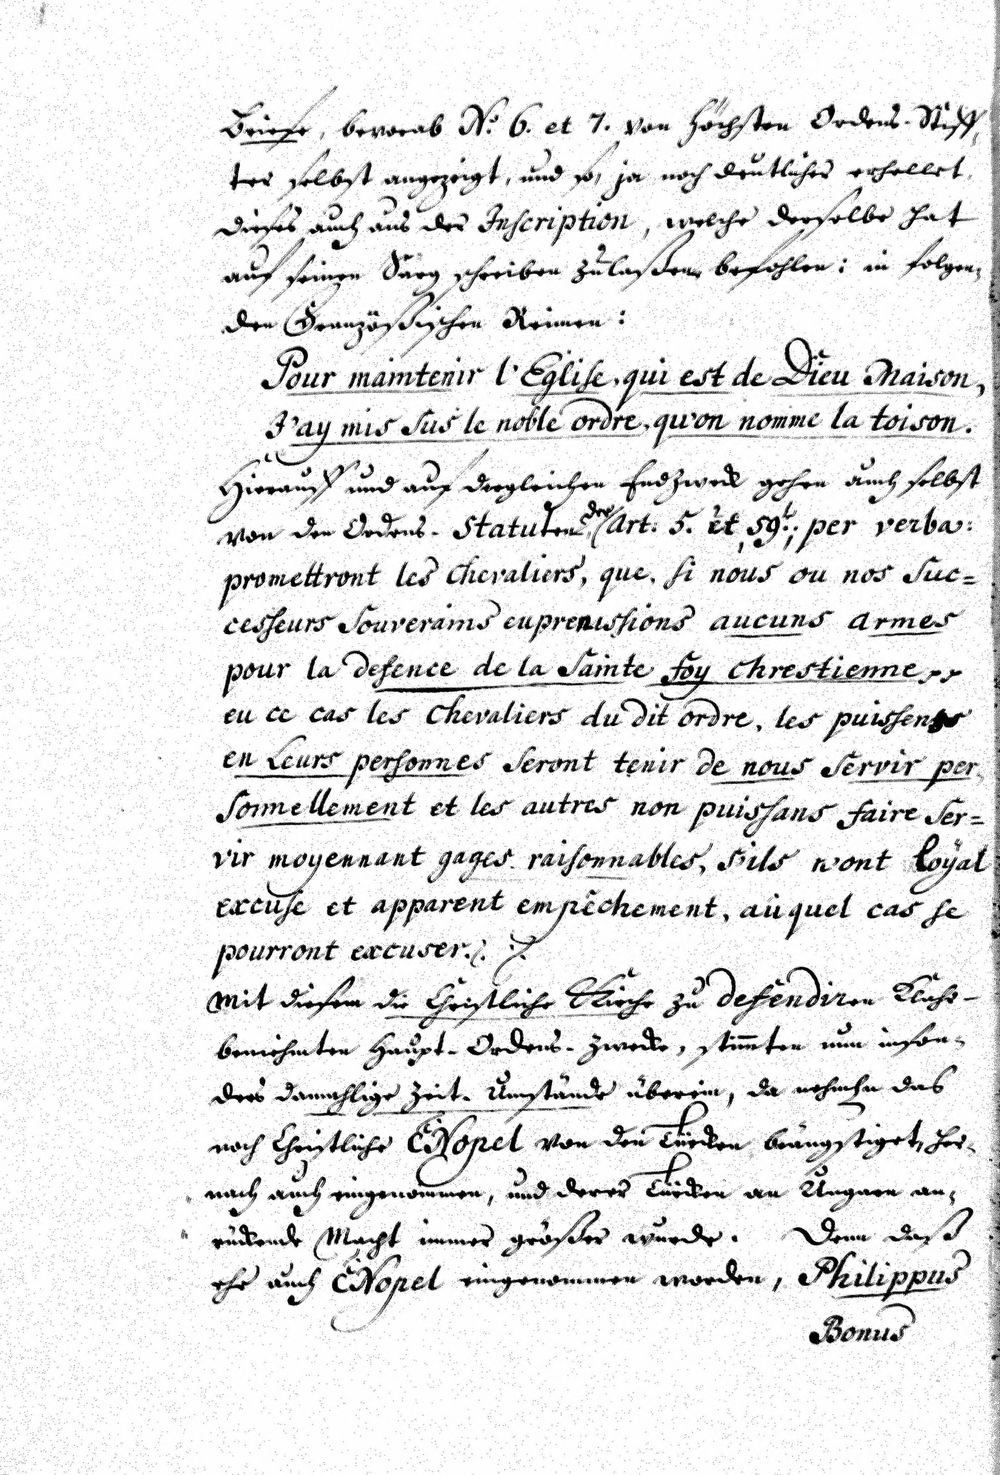 Briefe, bevorab N.° 6. et 7. von Höchsten Ordens-Stiff,
ter selbst angezeigt, und so, ja noch deutlicher erhellet,
dieses auch aus der Inscription, welche derselbe hat
auf seinen Sarg schreiben zulaßen befohlen: in folgen,
den Französischen Reimen:
Pour maintenir l'Eglise, qui est de Dieu Maison,
J'ay mis sus le noble ordre, qu'on nomme la toison.
Hierauff und auf dergleichen Endzweck gehen auch selbst
von den Ordens-Statuten der Art: 5. et 59t: per verba:
promettront les Chevaliers, que, si nous ou nos suc=
cesseurs Souverains euprenissions aucuns armes
pour la defence de la Sainte foy Chrestienne,,
eu ce cas les Chevaliers du dit ordre, les puissents
en Leurs personnes seront tenir de nous servir per,
sonnellement et les autres non puissans faire ser=
vir moyennant gages raisonnables, s'ils n'ont loÿal
excuse et apparent empêchement, auquel cas se
pourront excuser./. ./.
Mit diesem die Christliche Kirche zu defendiren
berührten Haupt-Ordens-Zwecke, stimmten nun inson,
ders damahlige Zeit-Umstände überein, da nehmhn das
noch Christliche CNopel von den Türcken beängstiget, her,
nach auch eingenommen, und derer Türcken an Ungarn an,
rückende Macht immer größer wurde. Denn daß
ehe auch CNopel eingenommen worden, Philippus
Bonus